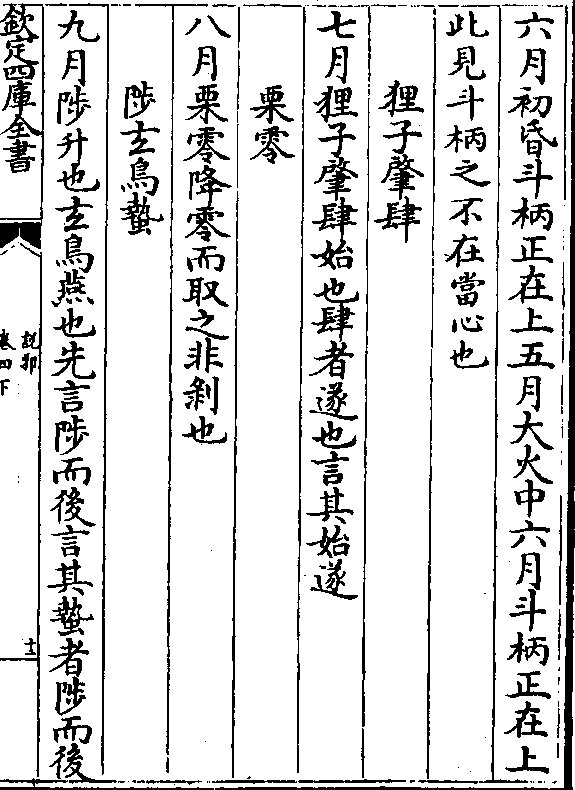 六月初昏斗柄正在上五月大火中六月斗柄正在上
此見斗柄之不在當心也
狸子肇肆
七月狸子肇肆始也肆者遂也言其始遂
栗零
八月栗零降零而取之非剝也
陟玄鳥蟄
九月陟升也玄鳥燕也先言陟而後言其蟄者陟而後
欽定四庫全書
說郛
卷四下
十三